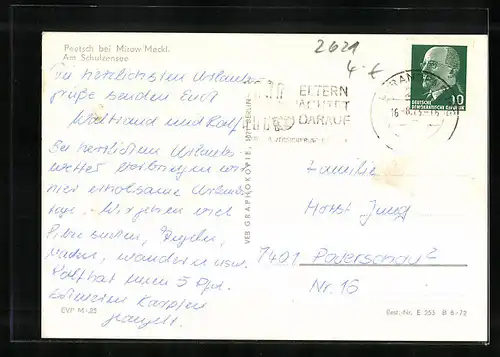 Peetsch bei Mirow Meckl.
Am Schulzensee
2621
4.-€
Die herzlichsten Urlaubs-
grüße senden Euch
Waltraud und Ralf
Bei herrlichem Urlaubs
wetter verbringen wir
hier erholsame Urlaubs
tage. Wir gehen viel
Pilze suchen, Angeln,
baden, wandern usw.
Ralf hat einen 5 Pfd.
schweren Karpfen
geangelt.
EVP M -,25
VEB GRAPHOKOPIE, 1071 BERLIN
ELTERN
ACHTET
DARAUF
VERSICHERUNG
16-
DEUTSCHE
DEMOKRATISCHE REPUBLIK
10
Familie
Horst Jung
7401 Paderschau
Nr. 15
Best.-Nr. E 255 B 6-72